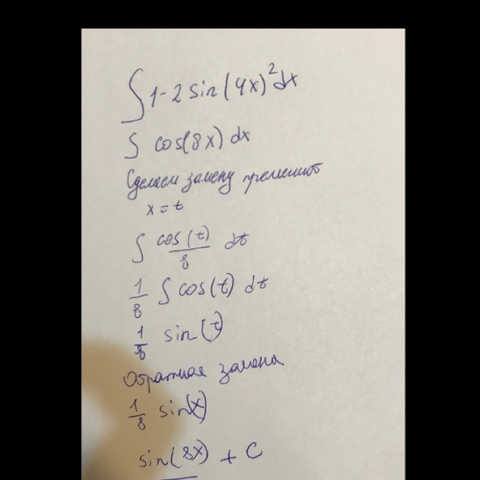 ∫ 1-2 sin(4x)² dx
∫ cos(8x) dx
Сделаем замену
x = t
∫ cos(t)/8 dt
1/8 ∫ cos(t) dt
1/8 sin(t)
Обратная замена
1/8 sin(x)
sin(8x) + C